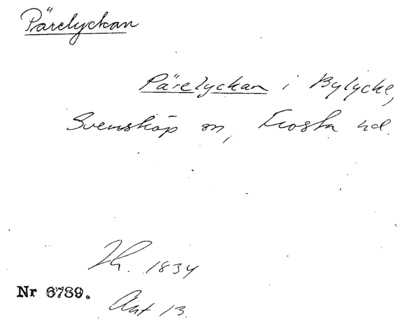 Pärelyckan
Pärelyckan i Bylycke,
Svensköp sn, Frosta hd.
Lh. 1834
Nr 6789.
Akt 13.